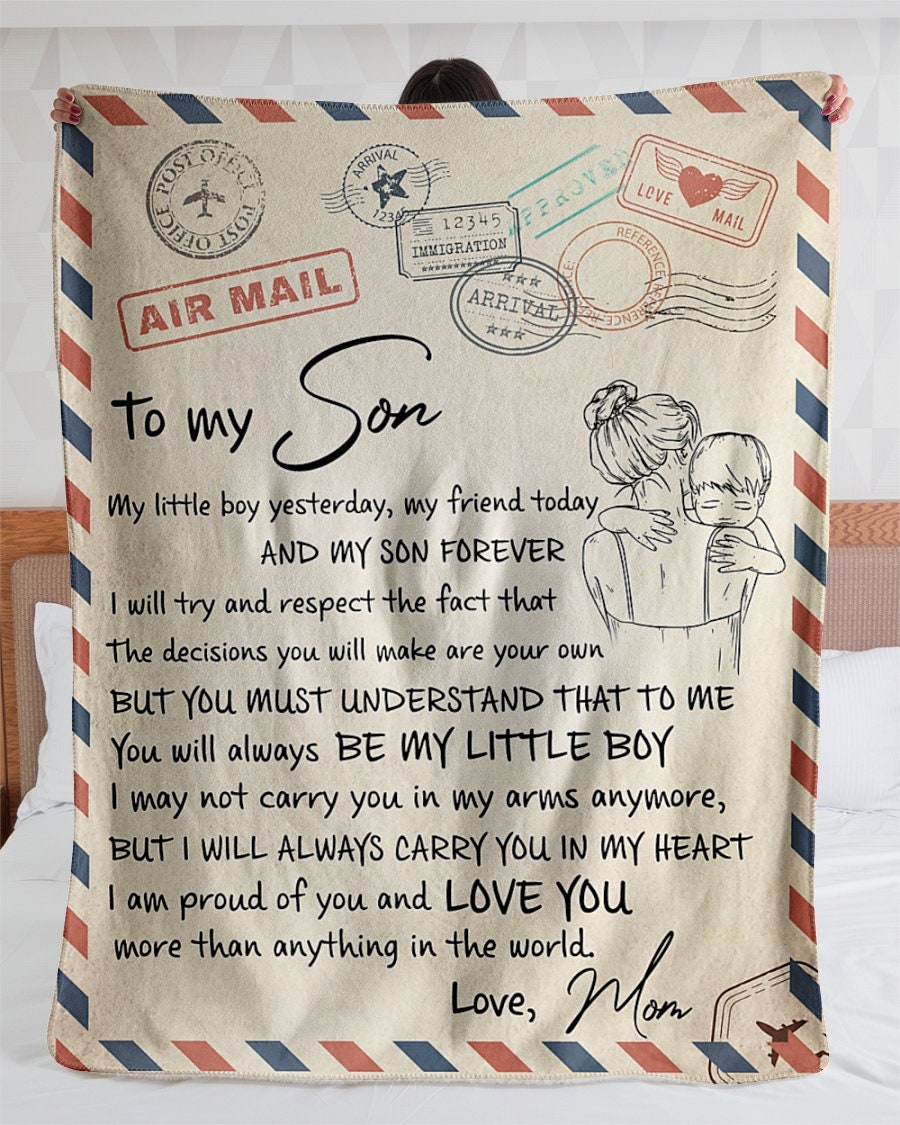 POST OFFICE POST OFFICE
ARRIVAL
12345
12345
IMMIGRATION
APPROVED
LOVE MAIL
REFERENCE
AIR MAIL
ARRIVAL
To my Son
My little boy yesterday, my friend today
AND MY SON FOREVER
I will try and respect the fact that
The decisions you will make are your own
BUT YOU MUST UNDERSTAND THAT TO ME
You will always BE MY LITTLE BOY
I may not carry you in my arms anymore,
BUT I WILL ALWAYS CARRY YOU IN MY HEART
I am proud of you and LOVE YOU
more than anything in the world.
Love, Mom